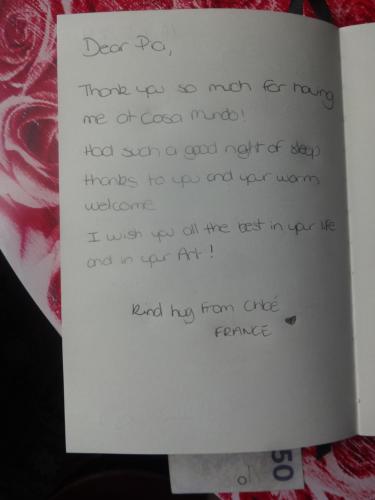 Dear Pa,
Thank you so much for having
me at Casa Mundo!
Had such a good night of sleep
thanks to you and your warm
welcome
I wish you all the best in your life
and in your Art!
Kind hug from Chloé
FRANCE
50